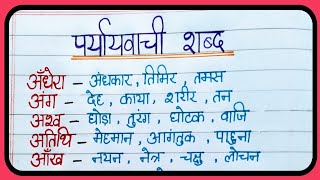 पर्यायवाची शब्द
अँधेरा – अंधकार, तिमिर, तमस
अंग – देह, काया, शरीर, तन
अश्व – घोड़ा, तुरंग, घोटक, वाजि
अतिथि – मेहमान, आगंतुक, पाहुना
आँख – नयन, नेत्र, चक्षु, लोचन